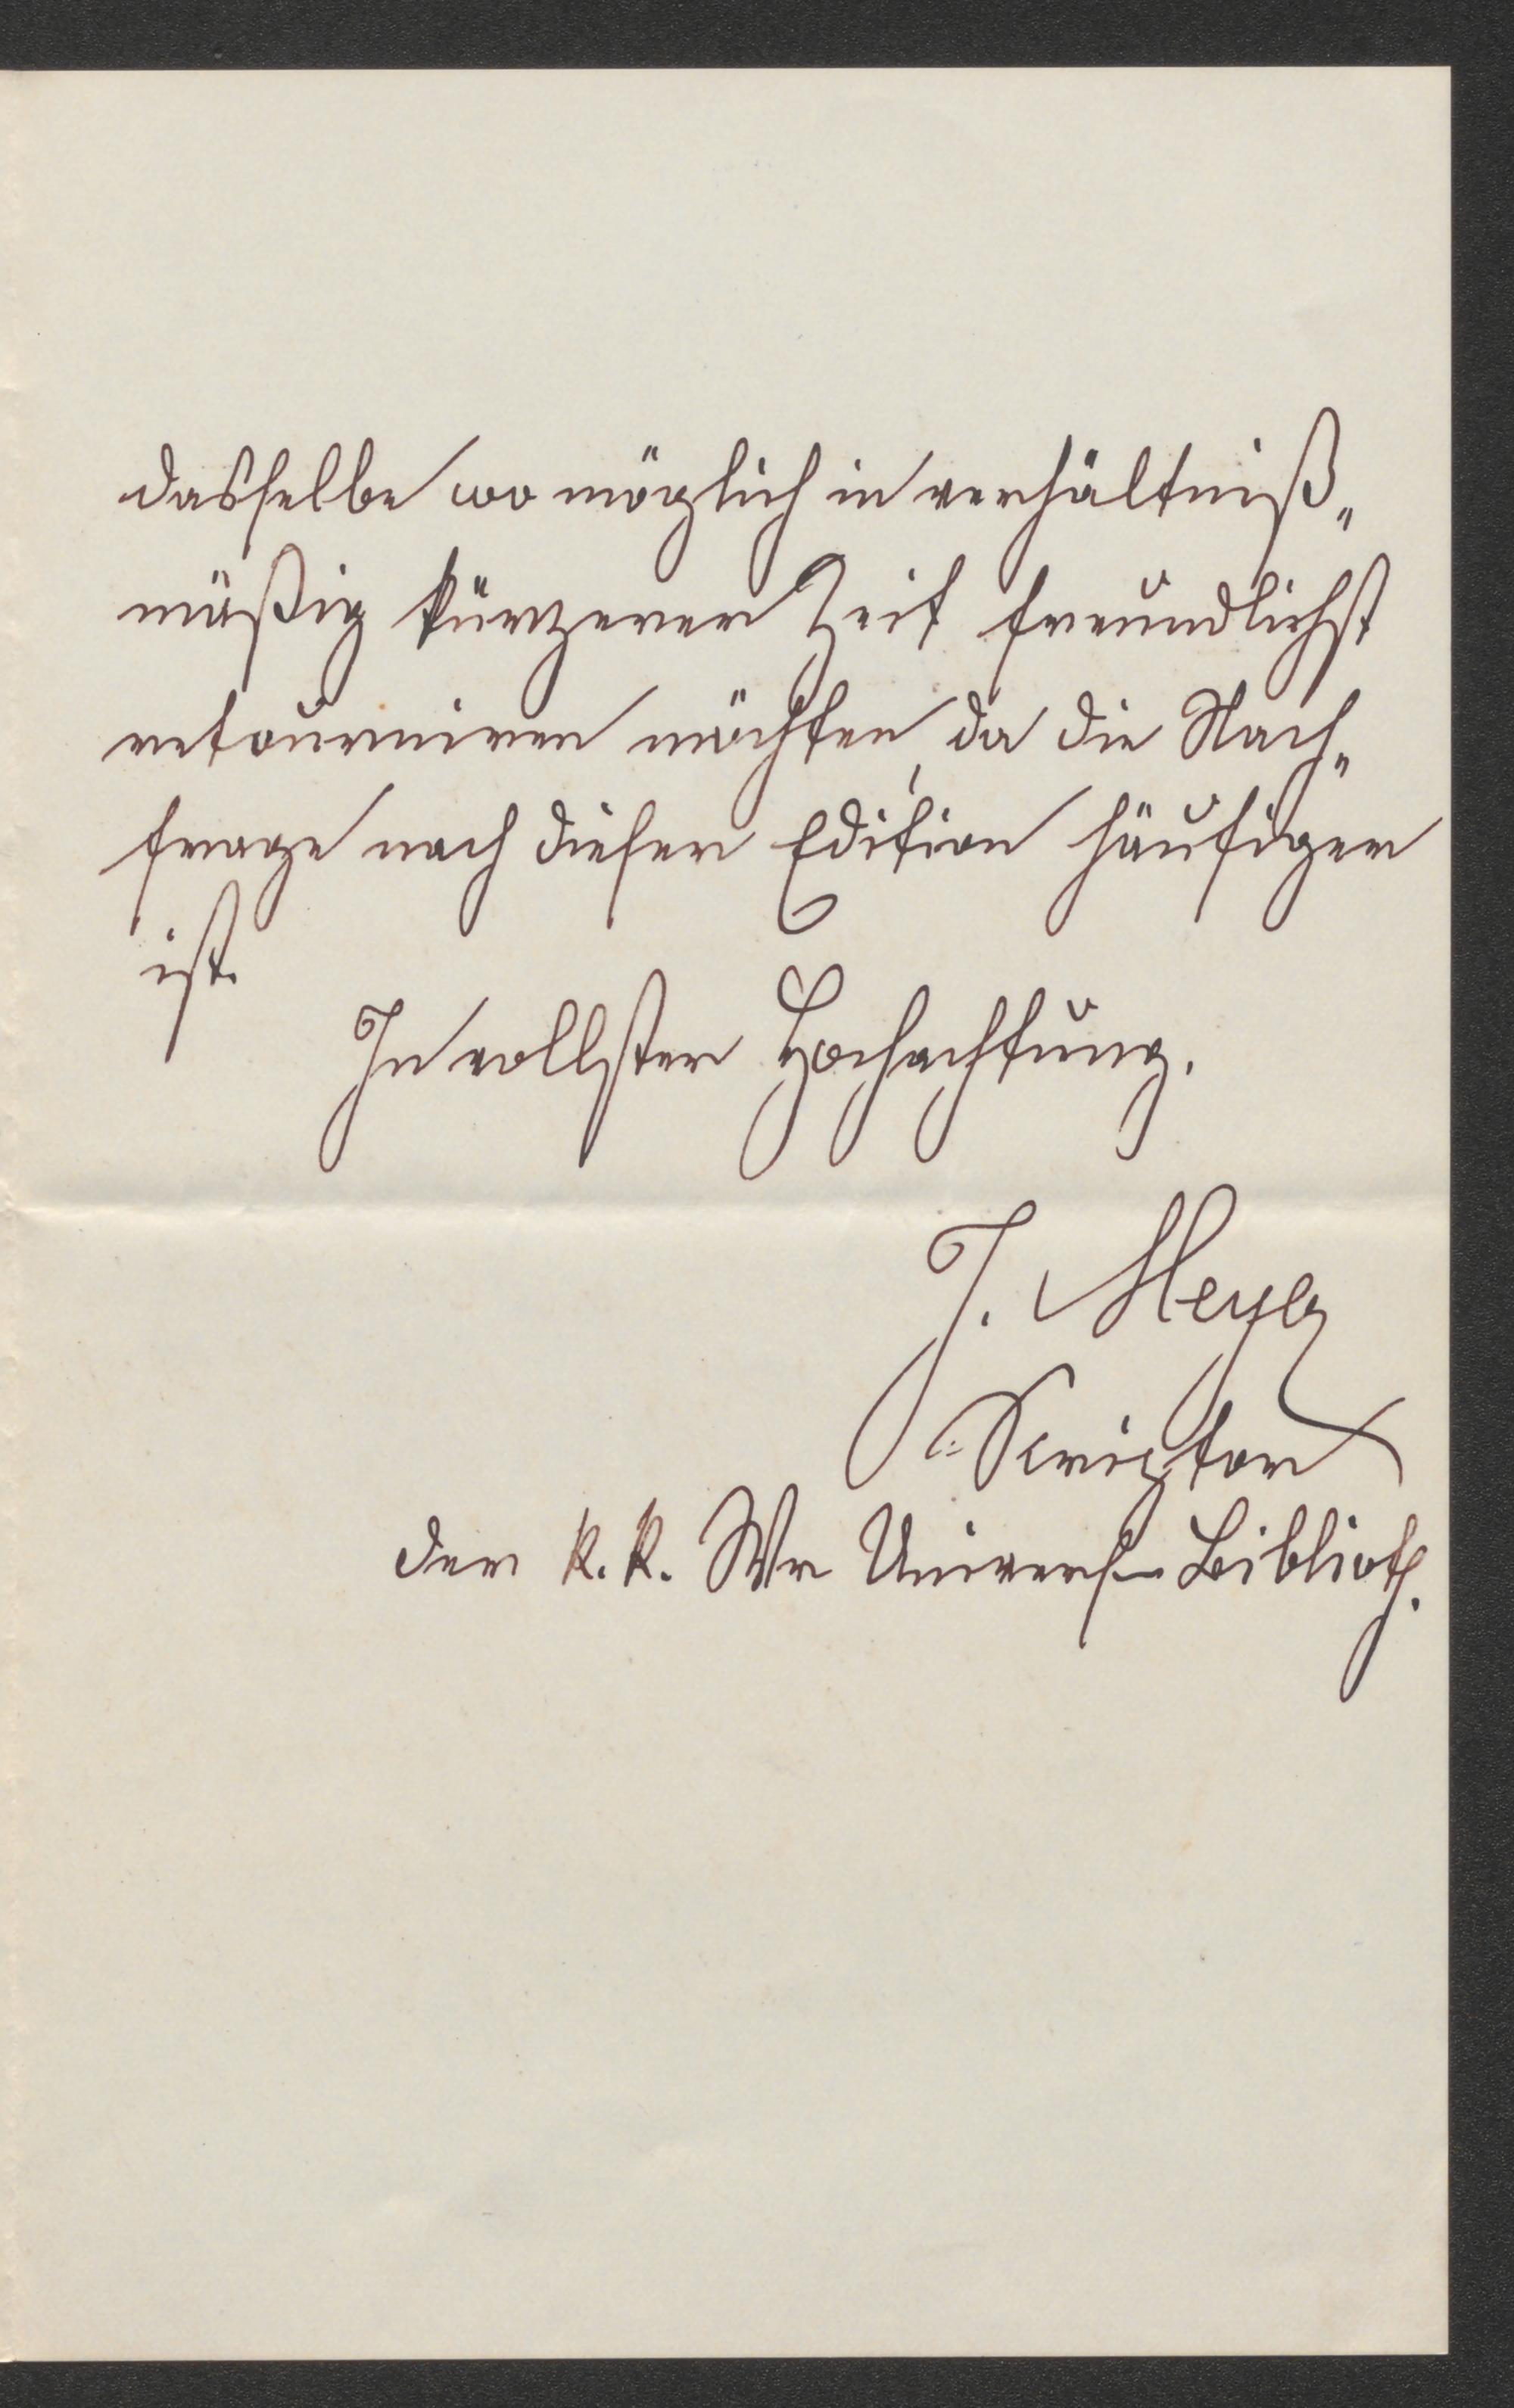 dasselbe wo möglich in verhältniß„
mäßig kürzerer Zeit freundlichst
retourniren möchten, da die Nach„
frage nach dieser Edition häufiger
ist.
In vollster Hochachtung.
J. Meyer
Scriptor
der k. k. Wr Univers-Biblioth.